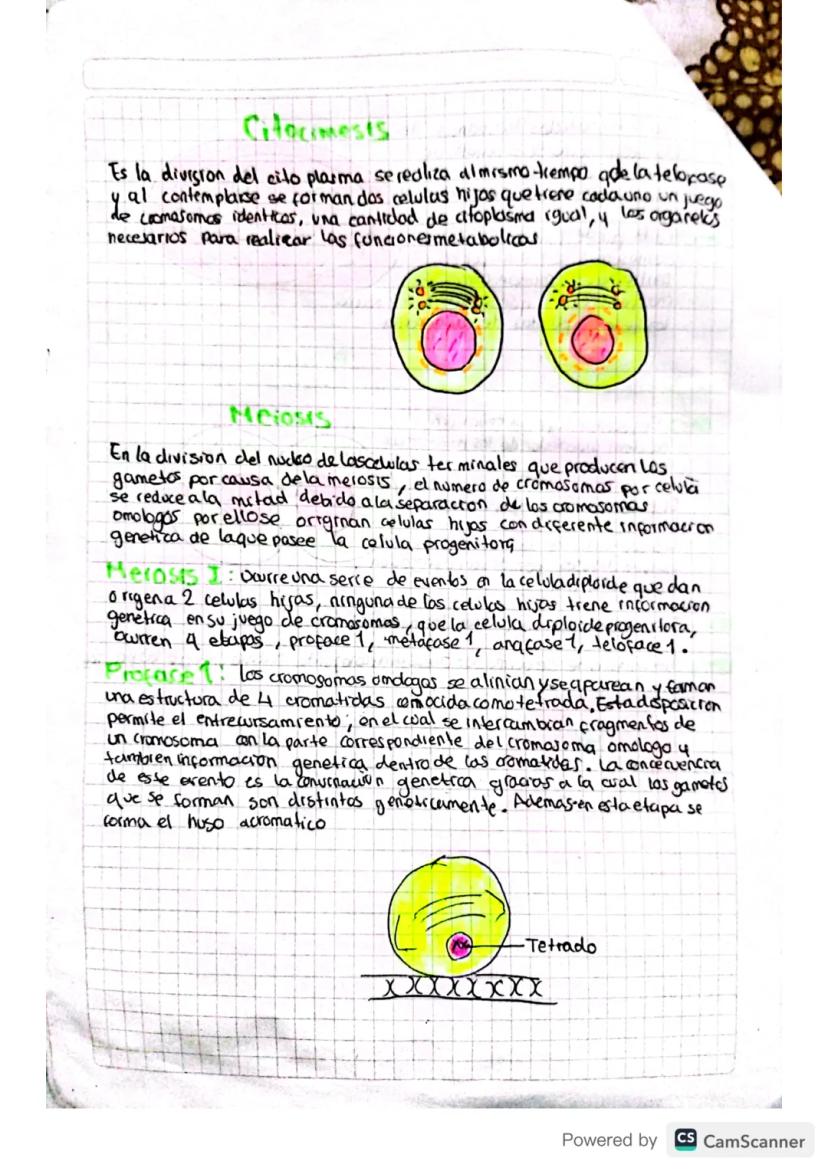 Citocinesis
Es la division del cito plasma se realiza al mismo tiempo q de la telofase
y al contemplarse se forman dos celulas hijas que tiene cada uno un juego
de cromosomas identicos, una cantidad de citoplasma igual, y los organelos
necesarios para realizar las funciones metabolicas
Meiosis
En la division del nucleo de las celulas terminales que producen los
gametos por causa de la meiosis, el numero de cromosomas por celula
se reduce a la mitad debido a la separacion de los cromosomas
omologos por ello se originan celulas hijas con diferente informacion
genetica de la que posee la celula progenitora
Meiosis I: Ocurre una serie de eventos en la celula diploide que dan
origen a 2 celulas hijas, ninguna de las celulas hijas tiene informacion
genetica en su juego de cromosomas, que la celula diploide progenitora,
ocurren 4 etapas, proface 1, metafase 1, anafase 1, teloface 1.
Proface 1: Los cromosomas omologos se alinian y se aparean y forman
una estructura de 4 cromatidas conocida como tetrada. Esta disposicion
permite el entrecursamiento, en el cual se intercambian fragmentos de
un cromosoma con la parte correspondiente del cromosoma omologo y
tambien informacion genetica dentro de las cromatidas. La concecuencia
de este evento es la genetica gracias a la cual los gametos
que se forman son distintos geneticamente. Ademas en esta etapa se
forma el huso acromatico
Tetrado
Powered by CS CamScanner